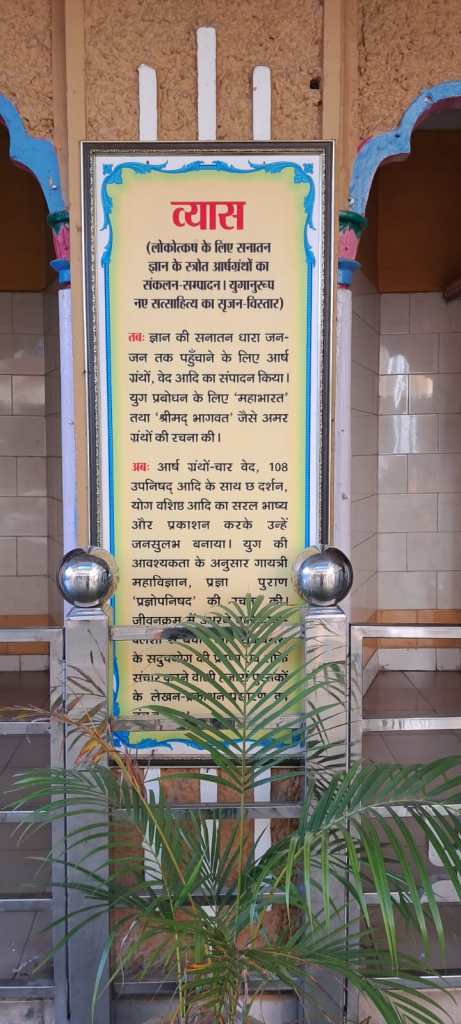 व्यास
(लोकोत्कर्ष के लिए सनातन
ज्ञान के स्त्रोत आर्षग्रंथों का
संकलन-सम्पादन। युगानुरूप
नए सत्साहित्य का सृजन-विस्तार)
तबः ज्ञान की सनातन धारा जन-
जन तक पहुँचाने के लिए आर्ष
ग्रंथों, वेद आदि का संपादन किया।
युग प्रबोधन के लिए 'महाभारत'
तथा 'श्रीमद् भागवत' जैसे अमर
ग्रंथों की रचना की।
अबः आर्ष ग्रंथों-चार वेद, 108
उपनिषद् आदि के साथ छ दर्शन,
योग वशिष्ठ आदि का सरल भाष्य
और प्रकाशन करके उन्हें
जनसुलभ बनाया। युग की
आवश्यकता के अनुसार गायत्री
महाविज्ञान, प्रज्ञा पुराण
'प्रज्ञोपनिषद' की रचना की।
जीवनक्रम में
के सदुपयोग की
संचार करने वाली हजारों पुस्तकों
के लेखन-प्रकाशन